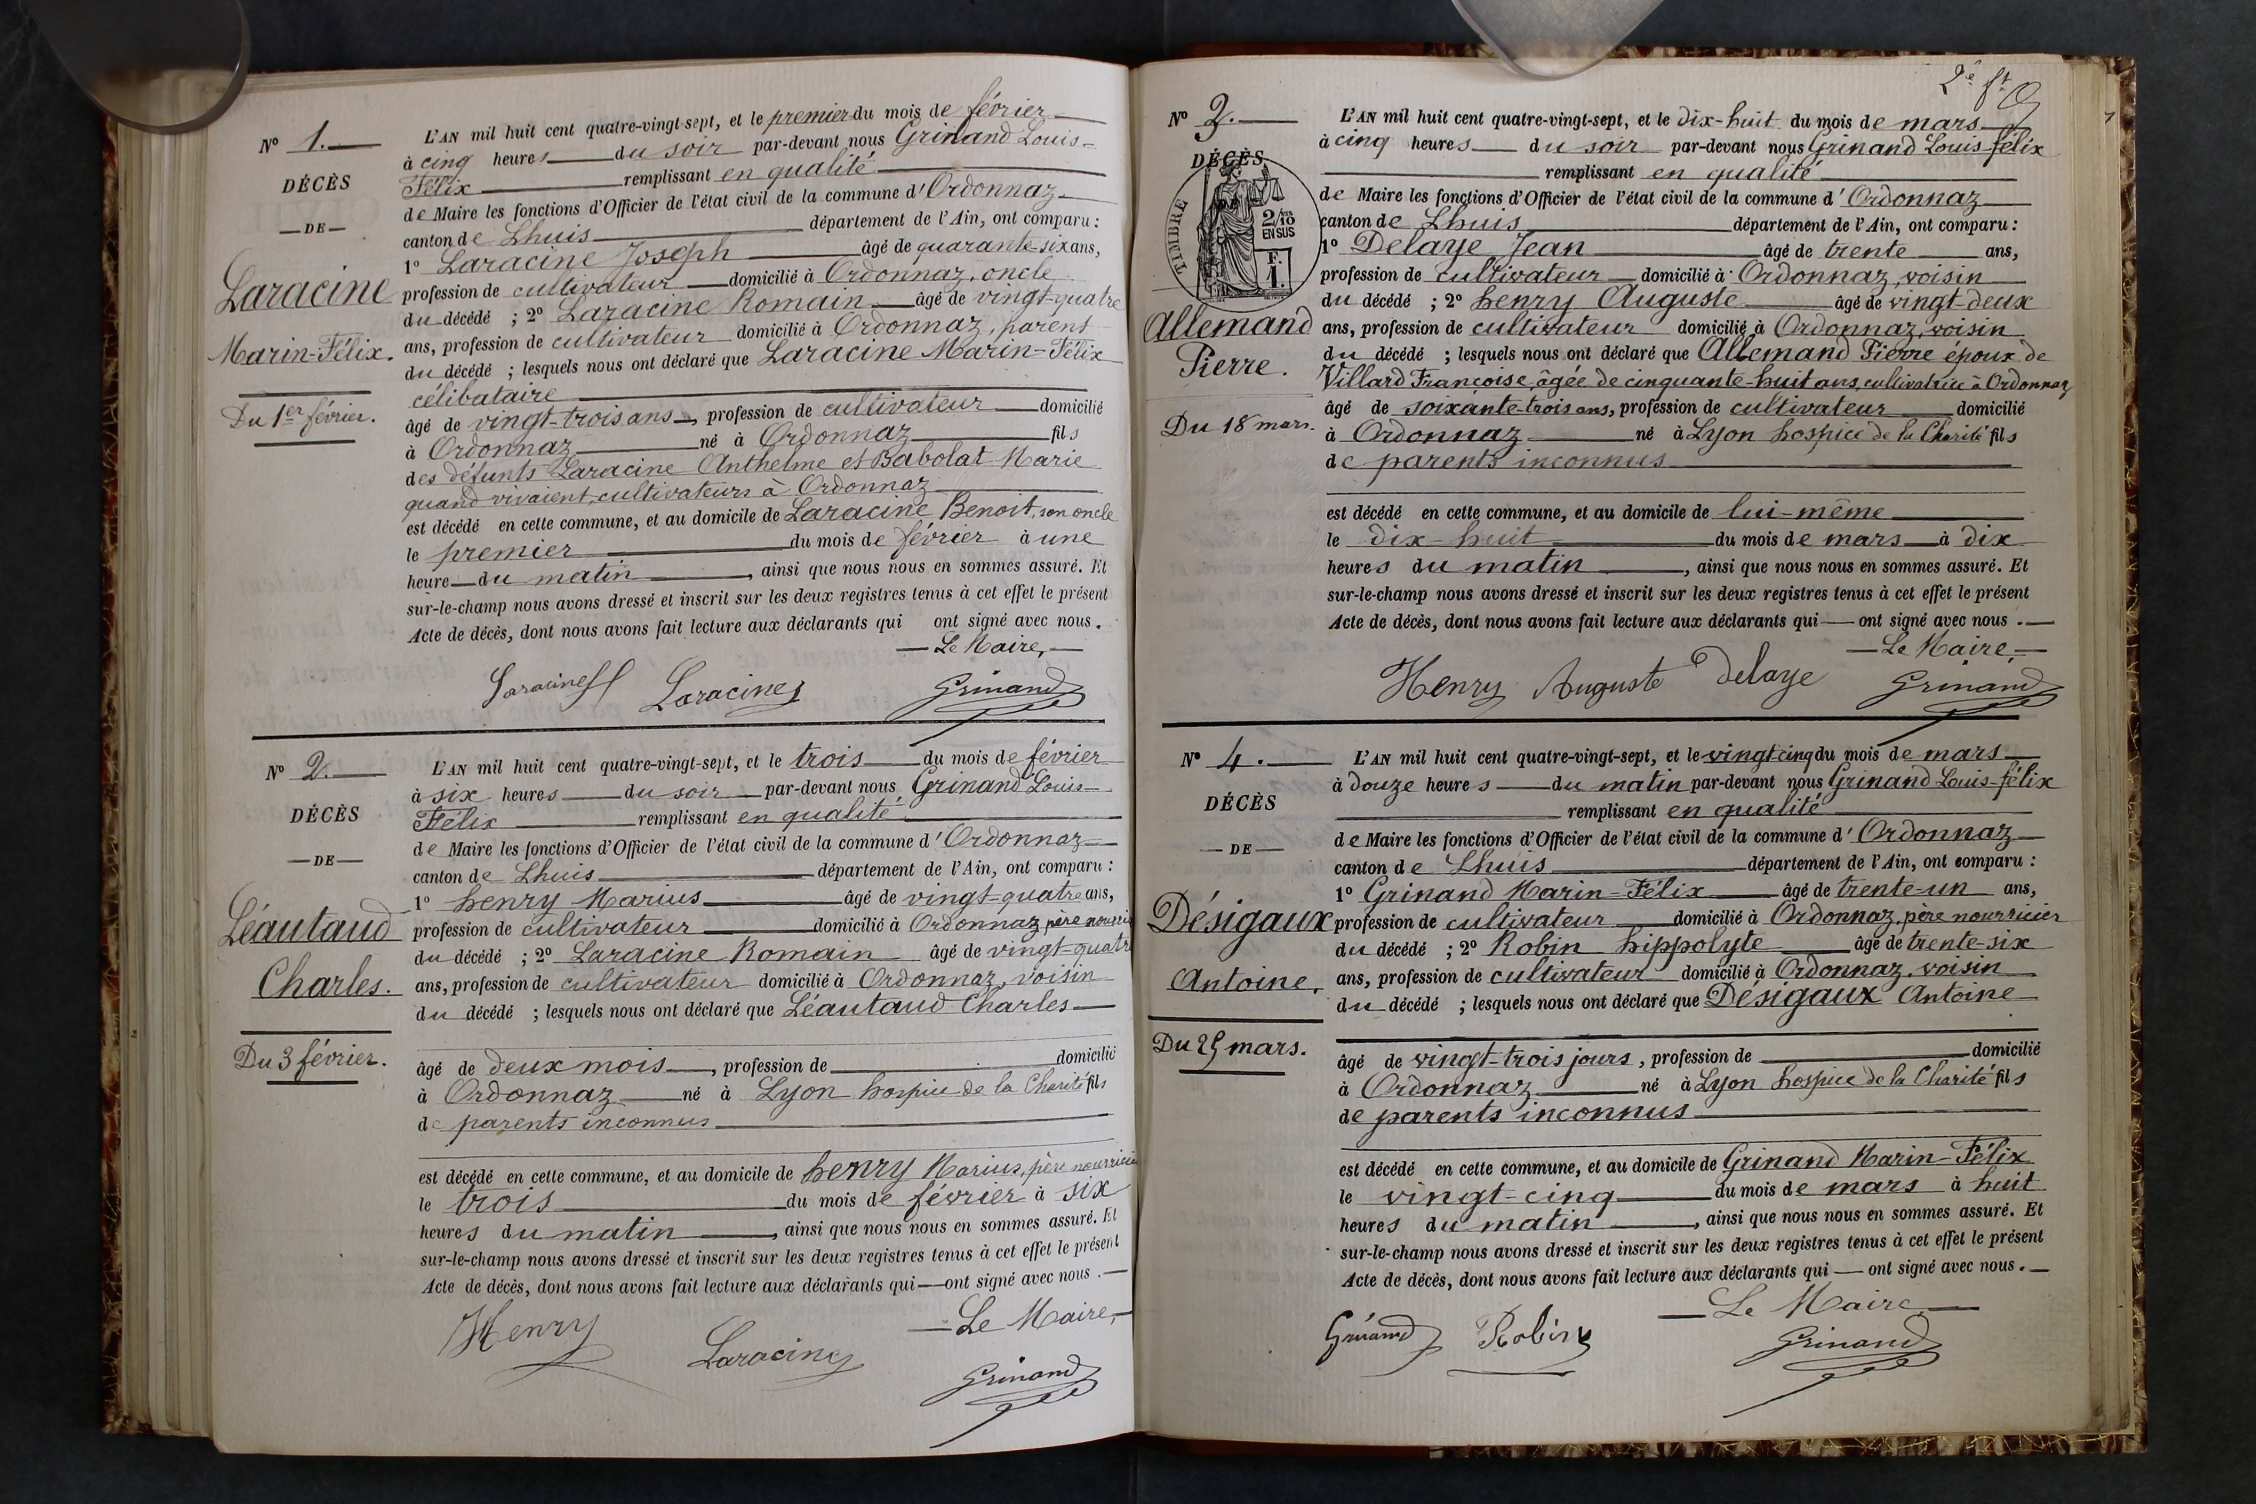 Nº 1.
DÉCÈS
— DE —
Laracine
Marin-Félix.
Du 1er février.
L'AN mil huit cent quatre-vingt-sept, et le premier du mois de février
à cinq heures du soir par-devant nous Grinand Louis-
Félix remplissant en qualité
de Maire les fonctions d'Officier de l'état civil de la commune d'Ordonnaz
canton de Lhuis département de l'Ain, ont comparu :
1º Laracine Joseph âgé de quarante-six ans,
profession de cultivateur domicilié à Ordonnaz, oncle
du décédé ; 2º Laracine Romain âgé de vingt-quatre
ans, profession de cultivateur domicilié à Ordonnaz, parent
du décédé ; lesquels nous ont déclaré que Laracine Marin-Félix
célibataire
âgé de vingt-trois ans, profession de cultivateur domicilié
à Ordonnaz né à Ordonnaz fils
des défunts Laracine Anthelme et Babolat Marie
quand vivaient, cultivateurs à Ordonnaz
est décédé en cette commune, et au domicile de Laracine Benoit, son oncle
le premier du mois de février à une
heure du matin, ainsi que nous nous en sommes assuré. Et
sur-le-champ nous avons dressé et inscrit sur les deux registres tenus à cet effet le présent
Acte de décès, dont nous avons fait lecture aux déclarants qui ont signé avec nous.
Le Maire,
Laracine Laracine Grinand
Nº 2.
DÉCÈS
— DE —
Léautaud
Charles.
Du 3 février.
L'AN mil huit cent quatre-vingt-sept, et le trois du mois de février
à six heures du soir par-devant nous Grinand Louis-
Félix remplissant en qualité
de Maire les fonctions d'Officier de l'état civil de la commune d'Ordonnaz
canton de Lhuis département de l'Ain, ont comparu :
1º Henry Marius âgé de vingt-quatre ans,
profession de cultivateur domicilié à Ordonnaz, père nourricier
du décédé ; 2º Laracine Romain âgé de vingt-quatre
ans, profession de cultivateur domicilié à Ordonnaz, voisin
du décédé ; lesquels nous ont déclaré que Léautaud Charles
âgé de deux mois, profession de domicilié
à Ordonnaz né à Lyon hospice de la Charité fils
de parents inconnus
est décédé en cette commune, et au domicile de Henry Marius, père nourricier
le trois du mois de février à six
heures du matin, ainsi que nous nous en sommes assuré. Et
sur-le-champ nous avons dressé et inscrit sur les deux registres tenus à cet effet le présent
Acte de décès, dont nous avons fait lecture aux déclarants qui ont signé avec nous.
Le Maire,
Henry Laracine Grinand
2e ft
Nº 3.
DÉCÈS
TIMBRE
2/10 EN SUS
F. 1.
Allemand
Pierre.
Du 18 mars.
L'AN mil huit cent quatre-vingt-sept, et le dix-huit du mois de mars
à cinq heures du soir par-devant nous Grinand Louis-félix
remplissant en qualité
de Maire les fonctions d'Officier de l'état civil de la commune d'Ordonnaz
canton de Lhuis département de l'Ain, ont comparu :
1º Delaye Jean âgé de trente ans,
profession de cultivateur domicilié à Ordonnaz, voisin
du décédé ; 2º Henry Auguste âgé de vingt-deux
ans, profession de cultivateur domicilié à Ordonnaz, voisin
du décédé ; lesquels nous ont déclaré que Allemand Pierre époux de
Villard Françoise, âgée de cinquante-huit ans, cultivatrice à Ordonnaz
âgé de soixante-trois ans, profession de cultivateur domicilié
à Ordonnaz né à Lyon hospice de la Charité fils
de parents inconnus
est décédé en cette commune, et au domicile de lui-même
le dix-huit du mois de mars à dix
heures du matin, ainsi que nous nous en sommes assuré. Et
sur-le-champ nous avons dressé et inscrit sur les deux registres tenus à cet effet le présent
Acte de décès, dont nous avons fait lecture aux déclarants qui ont signé avec nous.
Le Maire,
Henry Auguste Delaye Grinand
Nº 4.
DÉCÈS
— DE —
Désigaux
Antoine,
Du 25 mars.
L'AN mil huit cent quatre-vingt-sept, et le vingt-cinq du mois de mars
à douze heures du matin par-devant nous Grinand Louis-félix
remplissant en qualité
de Maire les fonctions d'Officier de l'état civil de la commune d'Ordonnaz
canton de Lhuis département de l'Ain, ont comparu :
1º Grinand Marin-Félix âgé de trente-un ans,
profession de cultivateur domicilié à Ordonnaz, père nourricier
du décédé ; 2º Robin hippolyte âgé de trente-six
ans, profession de cultivateur domicilié à Ordonnaz, voisin
du décédé ; lesquels nous ont déclaré que Désigaux Antoine
âgé de vingt-trois jours, profession de domicilié
à Ordonnaz né à Lyon hospice de la Charité fils
de parents inconnus
est décédé en cette commune, et au domicile de Grinand Marin-Félix
le vingt-cinq du mois de mars à huit
heures du matin, ainsi que nous nous en sommes assuré. Et
sur-le-champ nous avons dressé et inscrit sur les deux registres tenus à cet effet le présent
Acte de décès, dont nous avons fait lecture aux déclarants qui ont signé avec nous.
Le Maire,
Grinand Robin Grinand